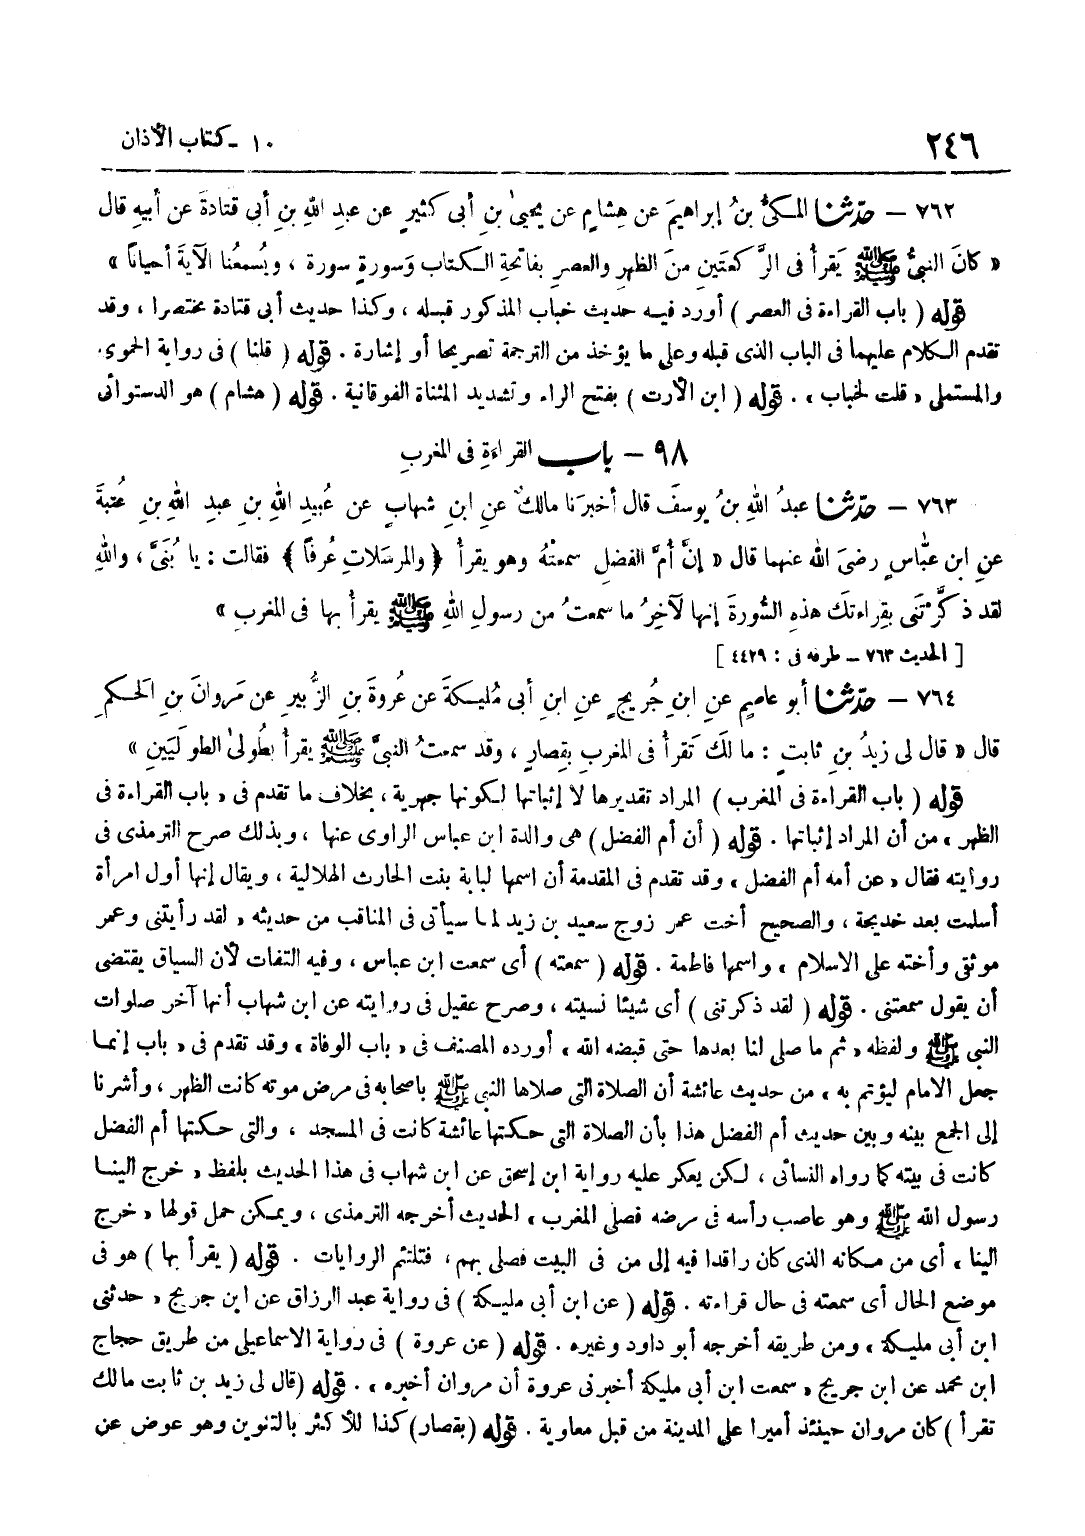 ٢٤٦
١٠ - كتاب الأذان
٧٦٢ - حدّثنا المكىُّ بنُ إبراهيمَ عن هِشامٍ عن يحيىٰ بنِ أبى كثيرٍ عن عبدِ اللهِ بنِ أبى قتادةَ عن أبيهِ قال
« كانَ النبىُّ ﷺ يَقرأُ فى الرَّكعتَينِ منَ الظهرِ والعصرِ بفاتحةِ الكتابِ وَسورةٍ سورة ، ويُسمعُنا الآيةَ أحيانًا »
قوله ( باب القراءة فى العصر ) أورد فيه حديث خباب المذكور قبله ، وكذا حديث أبى قتادة مختصرا ، وقد
تقدم الكلام عليهما فى الباب الذى قبله وعلى ما يؤخذ من الترجمة تصريحا أو إشارة . قوله ( قلنا ) فى رواية الحموى
والمستملى « قلت لخباب » . قوله ( ابن الأرت ) بفتح الراء وتشديد المثناة الفوقانية . قوله ( هشام ) هو الدستوائى
٩٨ - باب القراءَةِ فى المغربِ
٧٦٣ - حدّثنا عبدُ اللهِ بنُ يوسفَ قال أخبرَنا مالكٌ عنِ ابنِ شهابٍ عن عُبيدِ اللهِ بنِ عبدِ اللهِ بنِ عُتبةَ
عنِ ابن عبّاسٍ رضىَ الله عنهما قال « إنَّ أُمَّ الفضلِ سمعتْهُ وهو يقرأُ ﴿ والمرسَلاتِ عُرفًا ﴾ فقالت : يا بُنَىَّ ، واللهِ
لقد ذكَّرْتَنى بقِراءتكَ هذهِ السُّورةَ إنها لآخِرُ ما سمعتُ من رسولِ اللهِ ﷺ يقرأُ بها فى المغربِ »
[ الحديث ٧٦٣ - طرفه فى : ٤٤٢٩ ]
٧٦٤ - حدّثنا أبو عاصمٍ عنِ ابنِ جُريجٍ عنِ ابنِ أبى مُليكةَ عن عُروةَ بنِ الزُّبيرِ عن مَروانَ بنِ الحَكمِ
قال « قال لى زيدُ بنِ ثابتٍ : ما لكَ تَقرأُ فى المغربِ بقِصارٍ ، وقد سمعتُ النبىَّ ﷺ يقرأُ بطُولىٰ الطولَيَينِ »
قوله ( باب القراءة فى المغرب ) المراد تقديرها لا إثباتها لكونها جهرية ، بخلاف ما تقدم فى « باب القراءة فى
الظهر » من أن المراد إثباتها . قوله ( أن أم الفضل ) هى والدة ابن عباس الراوى عنها ، وبذلك صرح الترمذى فى
روايته فقال « عن أمه أم الفضل » وقد تقدم فى المقدمة أن اسمها لبابة بنت الحارث الهلالية ، ويقال إنها أول امرأة
أسلمت بعد خديجة ، والصحيح أخت عمر زوج سعيد بن زيد لما سيأتى فى المناقب من حديثه « لقد رأيتنى وعمر
موثقى وأخته على الاسلام » واسمها فاطمة . قوله ( سمعته ) أى سمعت ابن عباس ، وفيه التفات لأن السياق يقتضى
أن يقول سمعتنى . قوله ( لقد ذكرتنى ) أى شيئا نسيته ، وصرح عقيل فى روايته عن ابن شهاب أنها آخر صلوات
النبى ﷺ ولفظه « ثم ما صلى لنا بعدها حتى قبضه الله » أورده المصنف فى « باب الوفاة » وقد تقدم فى « باب إنما
جعل الامام ليؤتم به » من حديث عائشة أن الصلاة التى صلاها النبى ﷺ باصحابه فى مرض موته كانت الظهر ، وأشرنا
إلى الجمع بينه وبين حديث أم الفضل هذا بأن الصلاة التى حكتها عائشة كانت فى المسجد ، والتى حكتها أم الفضل
كانت فى بيته كما رواه النسائى ، لكن يعكر عليه رواية ابن إسحق عن ابن شهاب فى هذا الحديث بلفظ « خرج الينا
رسول الله ﷺ وهو عاصب رأسه فى مرضه فصلى المغرب » الحديث أخرجه الترمذى ، ويمكن حمل قولها « خرج
الينا » أى من مكانه الذى كان راقدا فيه إلى من فى البيت فصلى بهم ، فتلتئم الروايات . قوله ( يقرأ بها ) هو فى
موضع الحال أى سمعته فى حال قراءته . قوله ( عن ابن أبى مليكة ) فى رواية عبد الرزاق عن ابن جريج « حدثنى
ابن أبى مليكة » ومن طريقه أخرجه أبو داود وغيره . قوله ( عن عروة ) فى رواية الاسماعيلى من طريق حجاج
ابن محمد عن ابن جريج « سمعت ابن أبى مليكة أخبرنى عروة أن مروان أخبره » . قوله (قال لى زيد بن ثابت مالك
تقرأ ) كان مروان حينئذ أميرا على المدينة من قبل معاوية . قوله (بقصار) كذا للأكثر بالتنوين وهو عوض عن